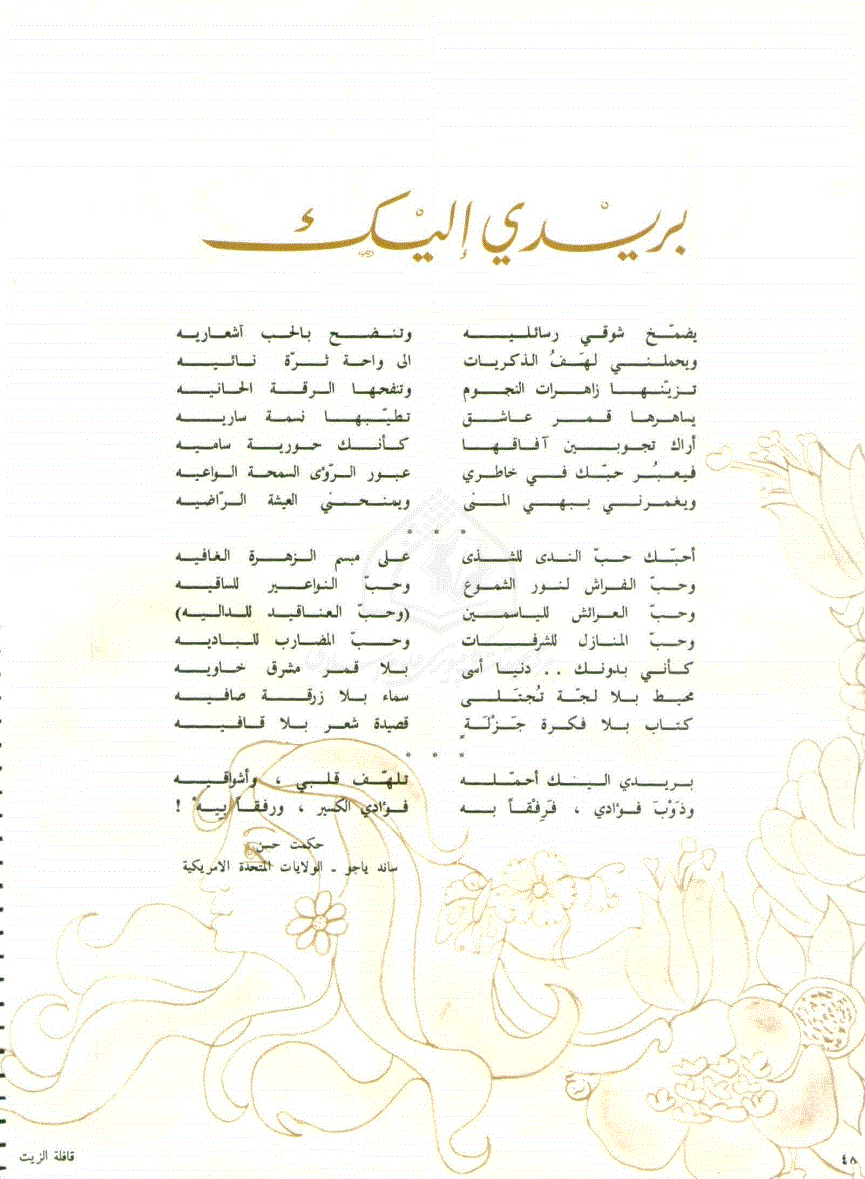 بريدي إليك
يضمّخ شوقي رسائليه وتنضح بالحب أشعاريه
ويحملني لهفُ الذكريات الى واحة ثرّة نائيه
تزيّنها زاهرات النجوم وتنفحها الرقة الحانيه
يساهرها قمر عاشق تطيّبها نسمة ساريه
أراك تجوبين آفاقها كأنك حورية ساميه
فيعبُر حبّك في خاطري عبور الرّؤى السمحة الواعيه
ويغمرني ببهي المنى ويمنحني العيشة الرّاضيه
* * *
أحبّك حبّ الندى للشذى على مبسم الزهرة الغافيه
وحبّ الفراش لنور الشموع وحبّ النواعير للساقيه
وحبّ العرائش للياسمين (وحبّ العناقيد للداليه)
وحبّ المنازل للشرفات وحبّ المضارب للباديه
كأني بدونك .. دنيا أسى بلا قمر مشرق خاويه
محيط بلا لجّة تُجتلى سماء بلا زرقة صافيه
كتاب بلا فكرة جَزْلَةٍ قصيدة شعر بلا قافيه
* * *
بريدي اليك أحمّله تلهّف قلبي ، وأشواقيه
وذَوْبَ فؤادي ، فَرِفْقاً به فؤادي الكسير ، ورفقاً بِيهْ !
حكمت حسن
ساند ياجو ـ الولايات المتحدة الامريكية
٤٨
قافلة الزيت